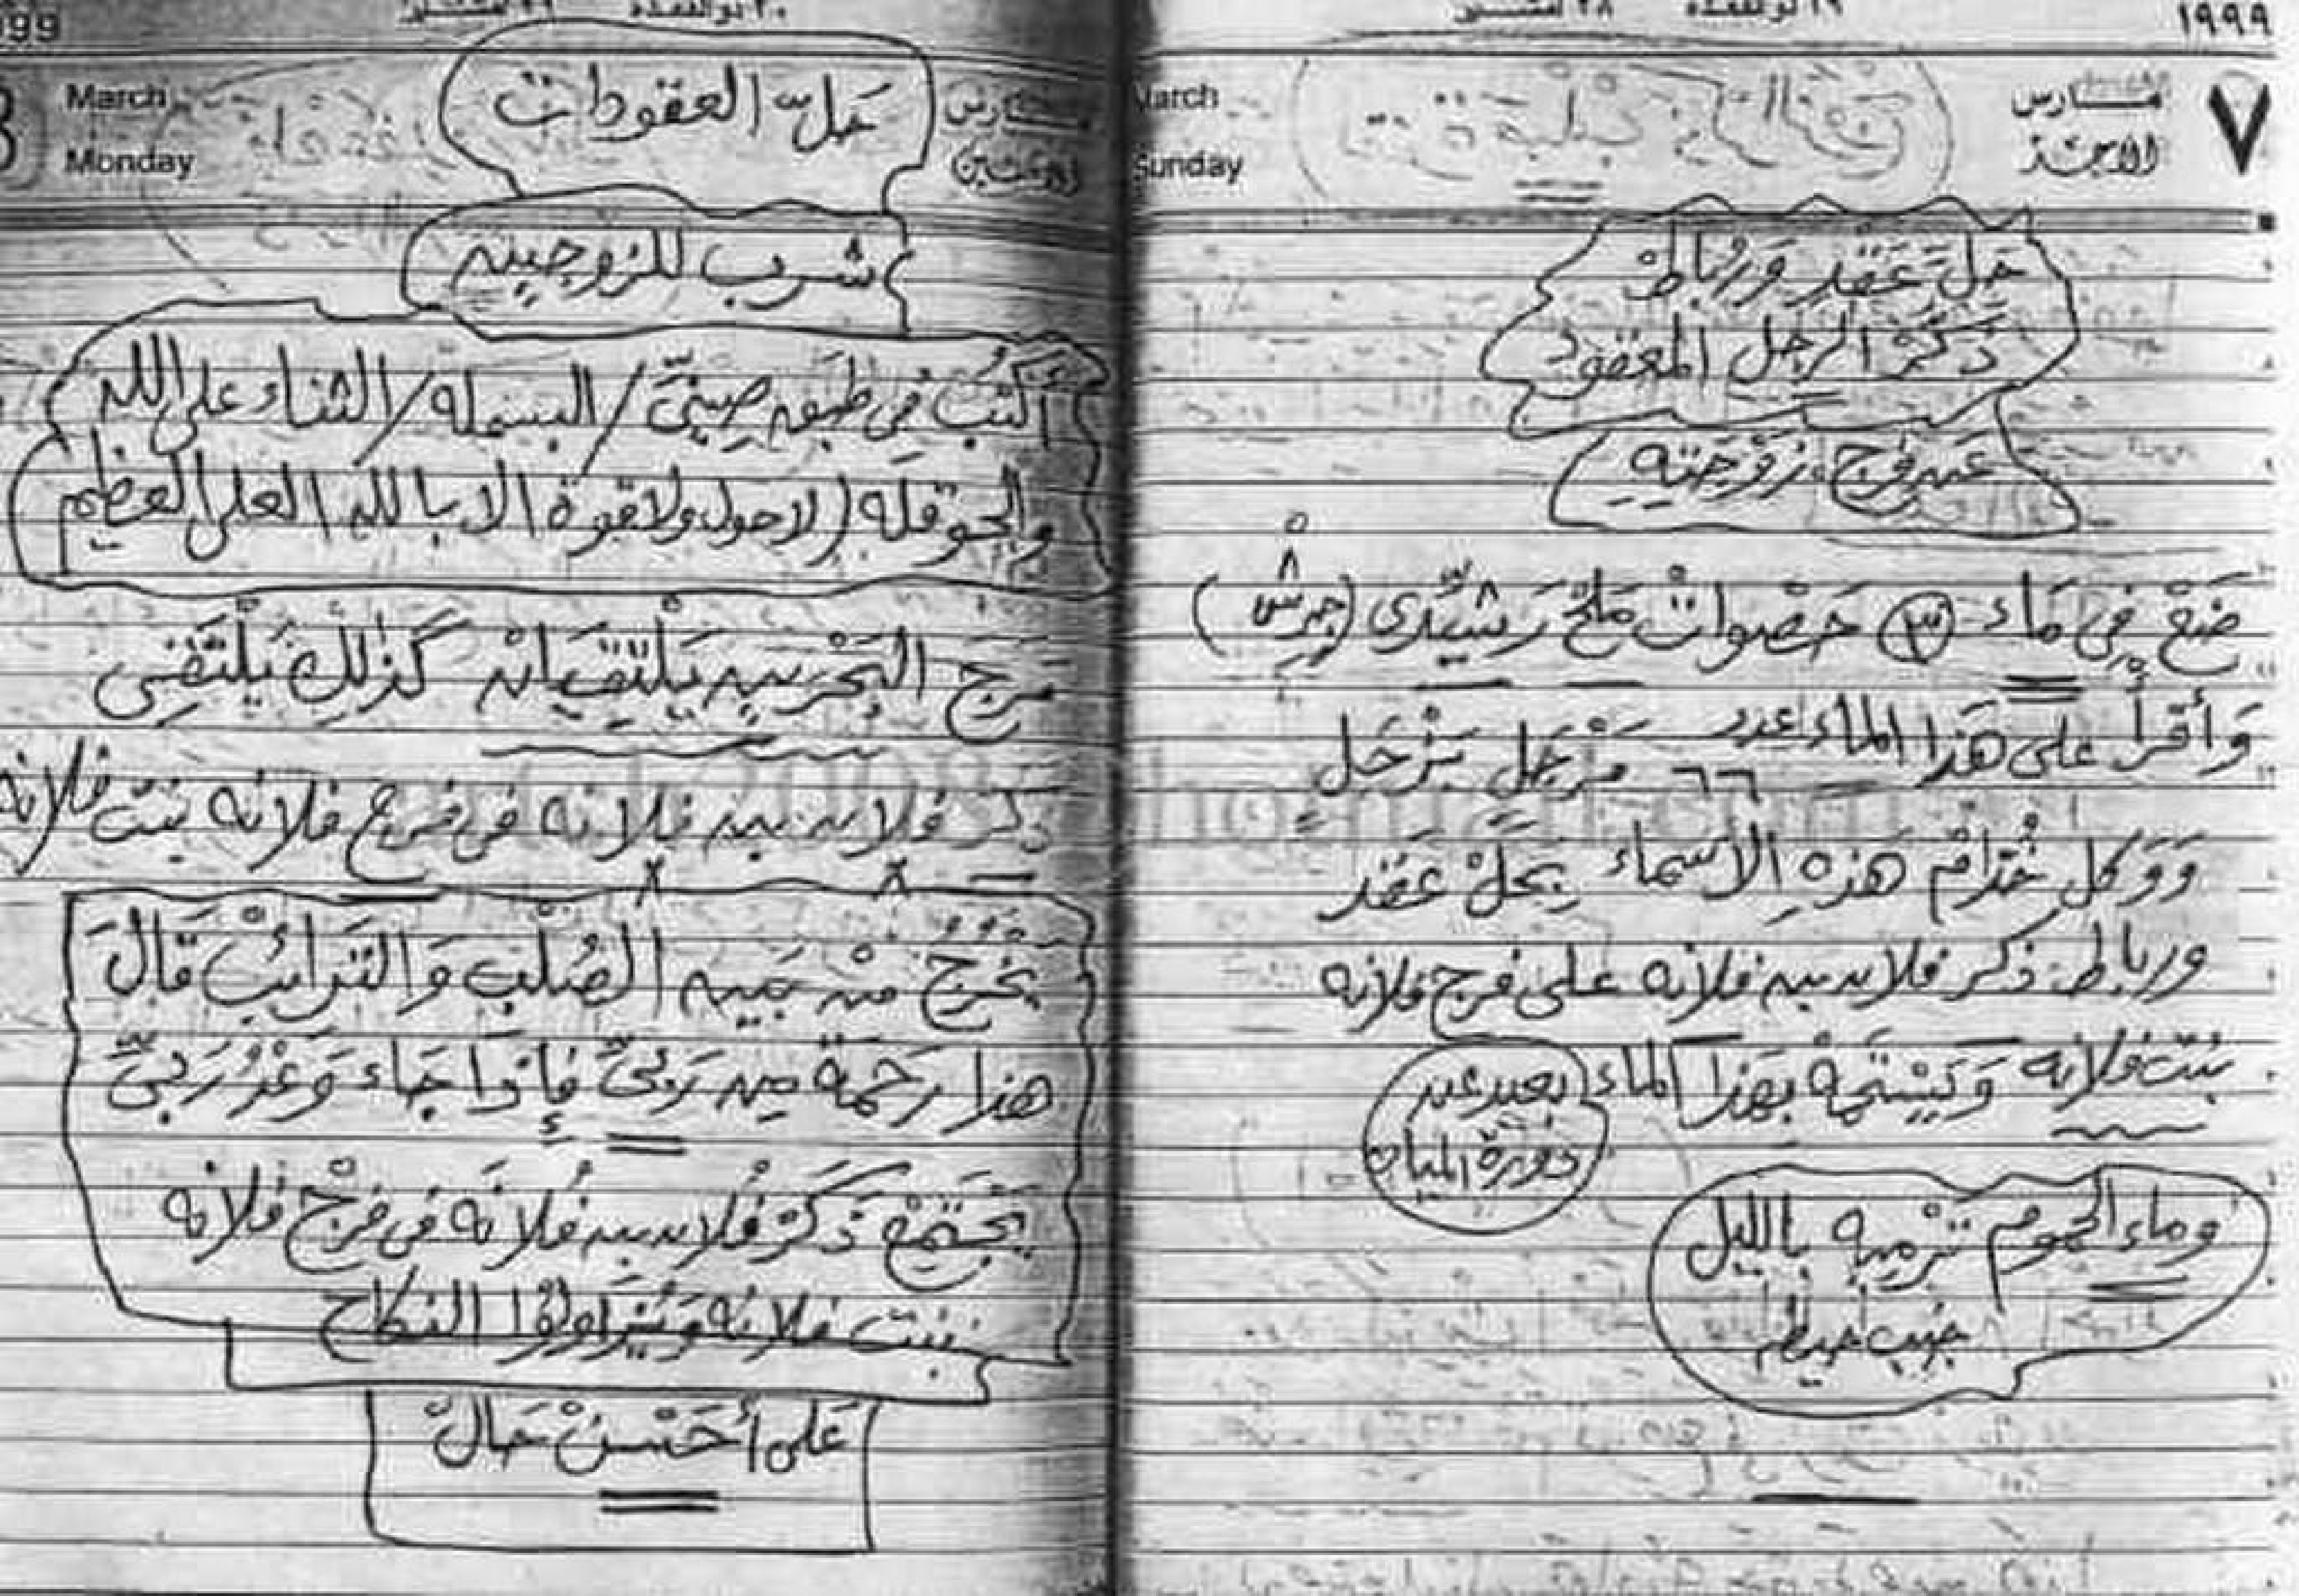 ١٩٩٩
٧
مارس
الاحد
March
Sunday
حَلّ عَقْدِ وَرُبَاطْ
ذَكَرْ الرجل المعقود
عَن فرج زَوْجَتِهِ
ضَعْ فِى مَاء ٣ حَصْوَاتْ مَلحْ رَشِيدى (جِرِشْ)
وَأقرأ على هَذا الماء عدد ٦٦ مَزْجَلٍ بَزْجَلٍ
وَوَكل خُدّامْ هَذِهِ الاسماء بِحَلْ عَقد
ورباط ذكر فلان بن فلانه على فرج فلانه
بنت فلانه وَيَسْتَحِمْ بهَذا الماء بعيد عن
دَورة المياه
وماء الحموم تَرْميه بالليل
جنب حيطه
99
March
Monday
مارس
الاثنين
حَلّ العقودات
شرب للزوجين
أكتُبْ فِى طَبَق صِينِىّ / البسمله / الثناء على الله
والحوقله (لاحول ولاقوة الا بالله العلى العظيم
مَرج البَحْرين يَلْتَقِيَانْ كَذلِكْ يَلْتَقِى
ذكر فلان بن فلانه فى فرج فلانه بنت فلانه
يَخْرُجُ مِنْ بَيْنِ الصُلْبِ وَالتَرَائِبْ قَالَ
هذا رَحْمَة مِن رَبِّىّ فإِذا جَاء وَعْدُ رَبِىّ
يَجْتَمِعْ ذَكَرْ فُلان بن فُلانَه فى فرجْ فلانه
بنت فلانه وَيُزَاوِلوُا النكاح
عَلى أَحْسَنْ حَالْ